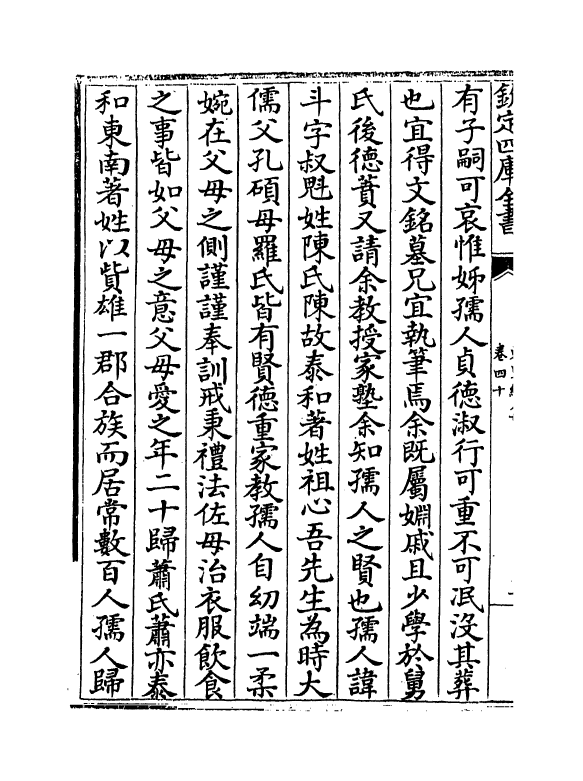 欽定四庫全書
卷四十
有子嗣可哀惟姊孺人貞德淑行可重不可泯沒其葬
也宜得文銘墓兄宜執筆焉余既屬婣戚且少學於舅
氏後德蕡又請余教授家塾余知孺人之賢也孺人諱
斗字叔魁姓陳氏陳故泰和著姓祖心吾先生為時大
儒父孔碩母羅氏皆有賢德重家教孺人自幼端一柔
婉在父母之側謹謹奉訓戒秉禮法佐母治衣服飲食
之事皆如父母之意父母愛之年二十歸蕭氏蕭亦泰
和東南著姓以貲雄一郡合族而居常數百人孺人歸